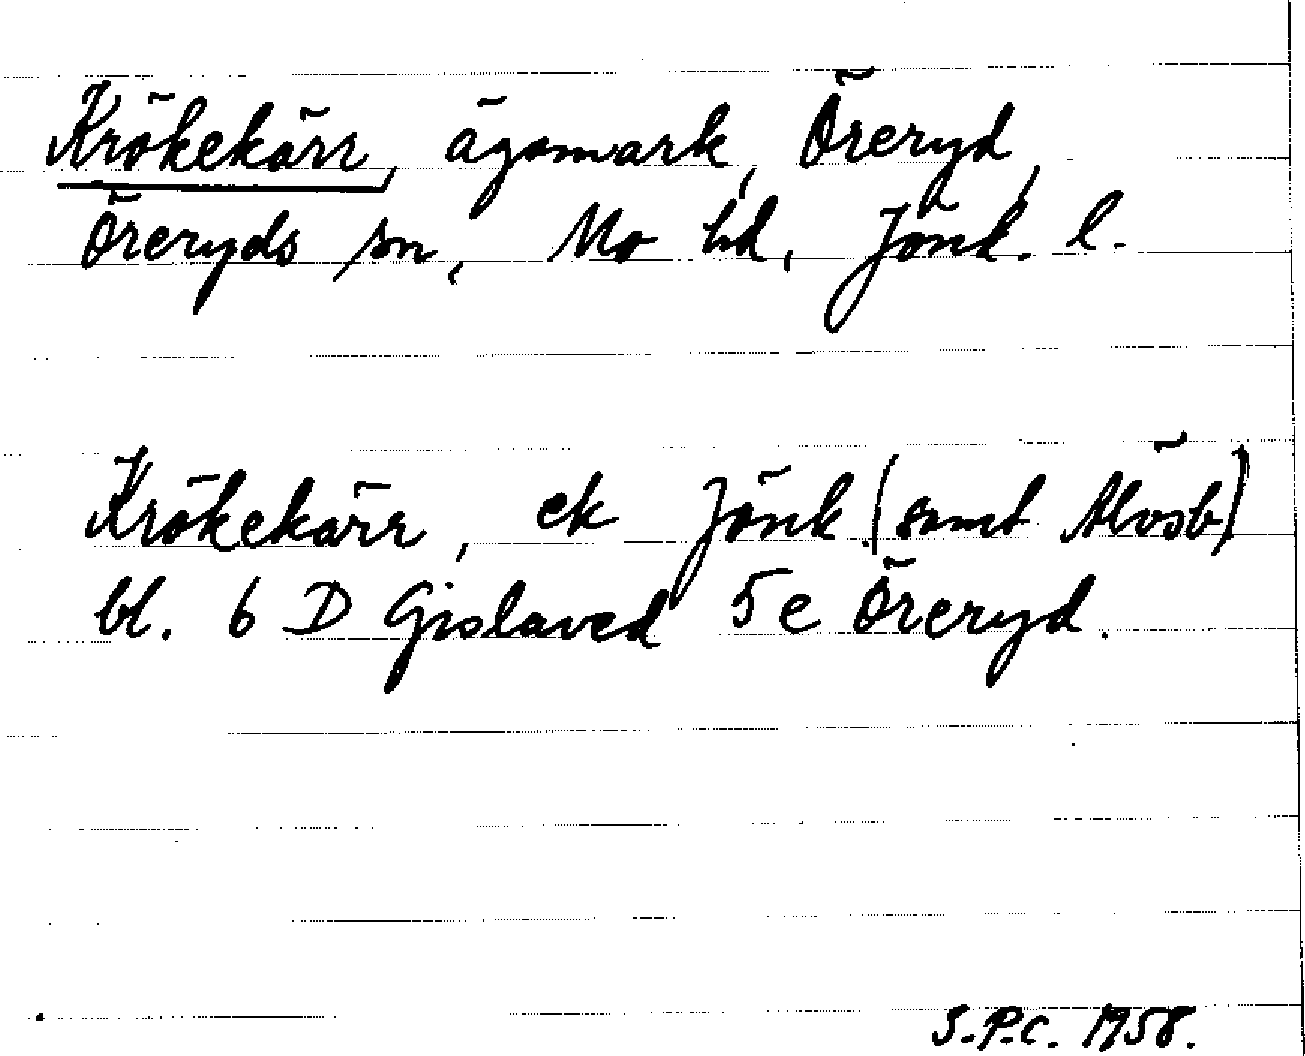 Krökekärr, ägomark, Öreryd,
Öreryds sn, Mo hd, Jönk. l.
Krökekärr, ek Jönk. (samt Älvsb)
bl. 6 D Gislaved 5e Öreryd.
S.P.C. 1958.